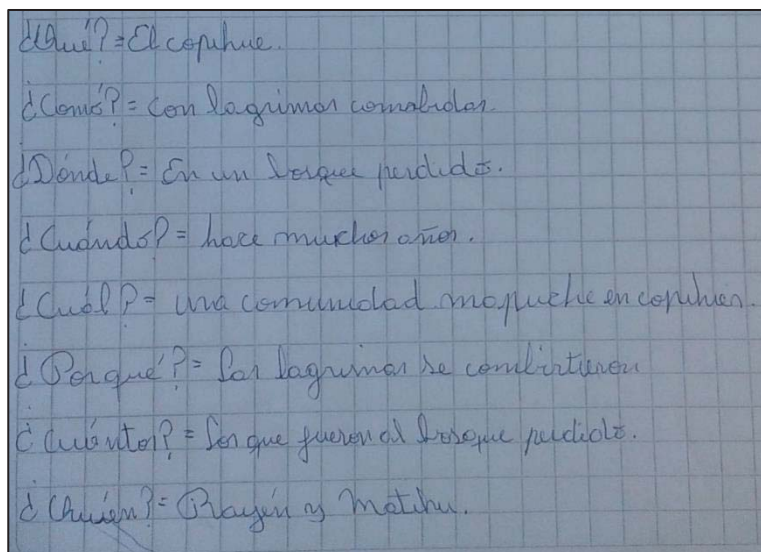 ¿Qué? = El copihue.
¿Como? = Con lagrimas
¿Dónde? = En un bosque perdido.
¿Cuándo? = hace muchos años.
¿Cuál? = una comunidad mapuche en copihues.
¿Porqué? = Las lagrimas se combirtieron
¿Cuántos? = Los que fueron al bosque perdido.
¿Quién? = Rayén y Matihu.